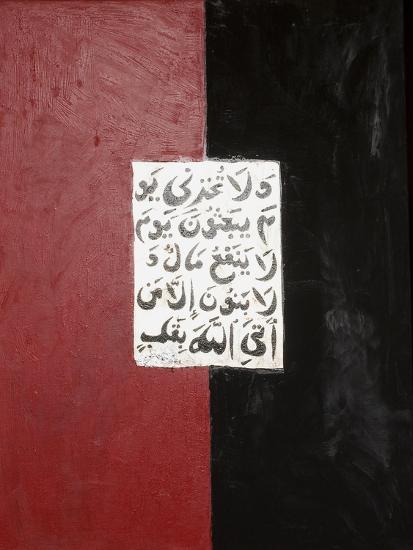 وَلَا تُخْزِنِي يَوْ
مَ يَبْعَثُونَ يَوْمَ
لَا يَنْفَعُ مَالٌ وَ
لَا بَنُونَ إِلَّا مَنْ
أَتَى اللَّهَ بِقَلْبٍ